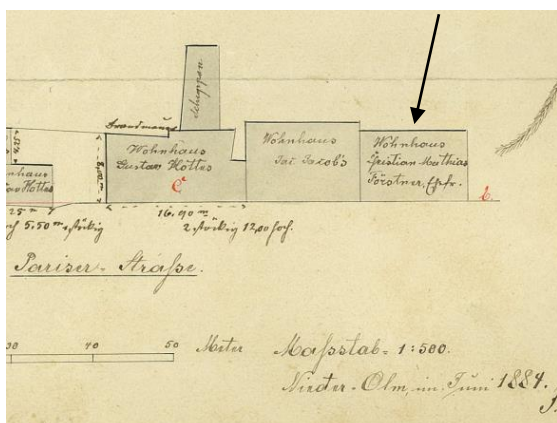 Schuppen
Brandmauer
4,25
Wohnhaus
Gustav Hottes
C
Wohnhaus
Jac. Jacob's
Wohnhaus
Christian Mathias
Förstner, Ehfr.
b.
nhaus
Hottes
25
16.90 m
5.50 m stöckig
2 stöckig 12,00 hoch.
Pariser-Straße.
30 40 50 Meter
Maßstab = 1:500.
Nieder-Olm, im Juni 1884.